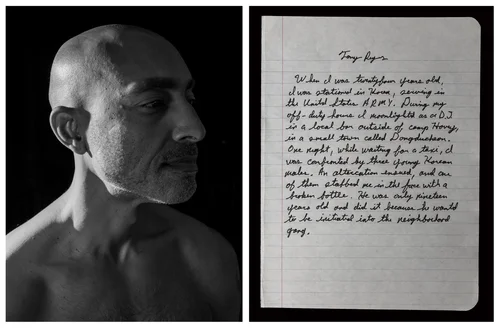 Tony Reyes
When I was twentyfour years old,
I was stationed in Korea, serving in
the United States ARMY. During my
off-duty hours I moonlighted as a D.J.
in a local bar outside of camp Hovey,
in a small town called Dongducheon.
One night, while waiting for a taxi, I
was confronted by three young Korean
males. An altercation ensued, and one
of them stabbed me in the face with a
broken bottle. He was only nineteen
years old and did it because he wanted
to be initiated into the neighborhood
gang.